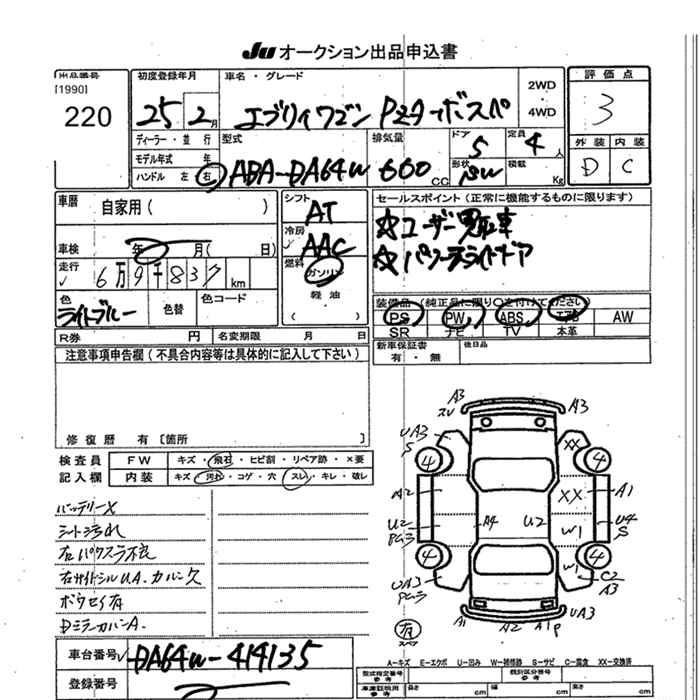 Ju オークション出品申込書
出品番号
[1990]
220
初度登録年月
25 2月
車名・グレード
エブリィワゴン PZターボスペ
2WD
・
4WD
評価点
3
外装 内装
D C
ディーラー・並行
モデル年式 年
ハンドル 左 右
型式
ABA-DA64W
排気量
660 CC
ドア
5
定員
4人
形状
SW
積載
Kg
車歴
自家用( )
車検
年 月( 日)
走行
6万9千837km
色
ライトブルー
色替
色コード
シフト
AT
冷房
AAC
燃料
ガソリン
軽油
( )
セールスポイント(正常に機能するものに限ります)
☆ユーザー買取車
☆パワースライドドア
装備品(純正品に限り○を付けてください)
PS PW ABS エアB AW
SR ナビ TV 本革
R券 円
名変期限 月 日
新車保証書
有・無
後日品
注意事項申告欄(不具合内容等は具体的に記入して下さい)
修復歴 有[箇所 ]
検査員
記入欄
FW キズ・飛石・ヒビ割・リペア跡・×要
内装 キズ・汚れ・コゲ・穴・スレ・キレ・破レ
バッテリーX
シート汚れ
右パワスラ不良
右サイドシルUA.カバー欠
ボウセイ有
Dミラーカバー A.
A3
SV
A3
UA3
S
XX
4
4
A2
XX
A1
U2
PC3
A4
U2
W1
U4
S
4
4
W1
UA3
PC3
C2
A3
A1
A2
A1
P
UA3
有
スペア
車台番号
DA64W-414135
登録番号
A-キズ E-エクボ U-凹み W-補修跡 S-サビ C-腐食 XX-交換済
型式指定番号
参考
類別区分番号
参考
車庫証明用
参考
長さ cm
幅 cm
高さ cm